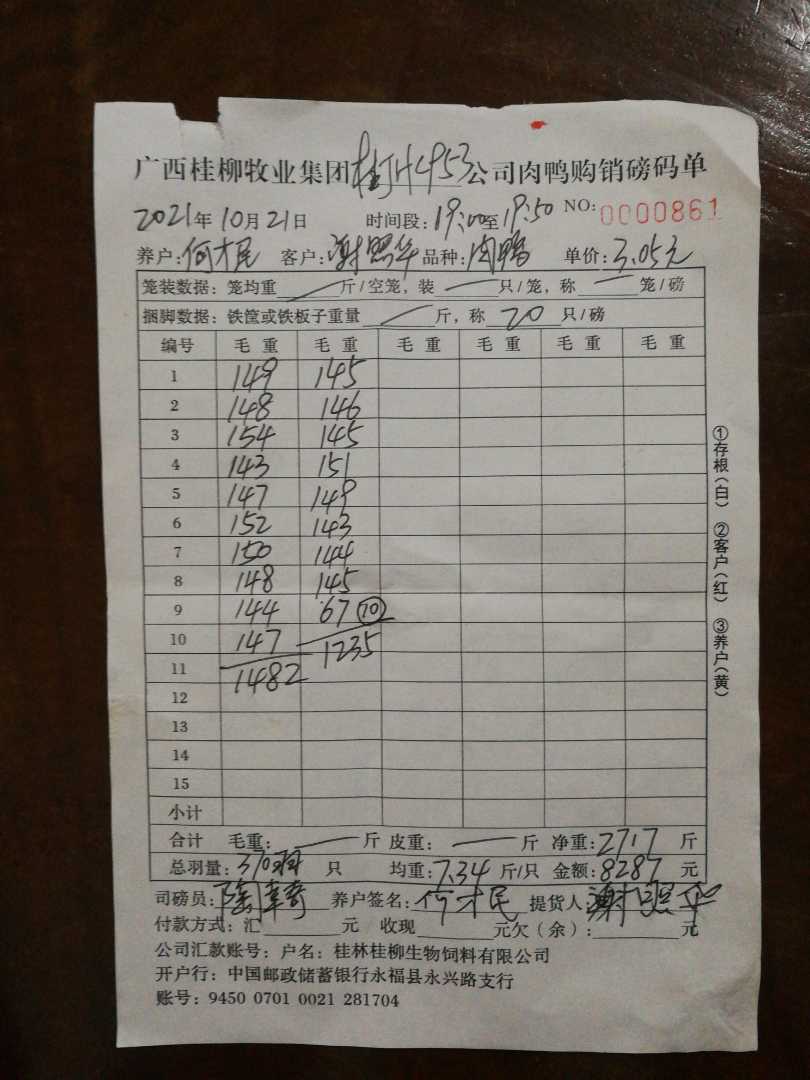 广西桂柳牧业集团桂川453公司肉鸭购销磅码单
2021年10月21日 时间段:19:00至19:50 NO: 0000861
养户:何才民 客户:谢照华 品种:肉鸭 单价:3.05元
笼装数据:笼均重 斤/空笼,装 只/笼,称 笼/磅
捆脚数据:铁筐或铁板子重量 斤,称20只/磅
编号 毛重 毛重 毛重 毛重 毛重 毛重
1 149 145
2 148 146
3 154 145
4 143 151
5 147 149
6 152 143
7 150 144
8 148 145
9 144 67 ⑩
10 147 1235
11 1482
12
13
14
15
小计
合计 毛重: 斤 皮重: 斤 净重:2717 斤
总羽量:370羽 只 均重:7.34 斤/只 金额:8287 元
司磅员: 养户签名:何才民 提货人 谢照华
付款方式:汇 元 收现 元欠(余): 元
公司汇款账号:户名:桂林桂柳生物饲料有限公司
开户行:中国邮政储蓄银行永福县永兴路支行
账号:9450 0701 0021 281704
①存根(白) ②客户(红) ③养户(黄)